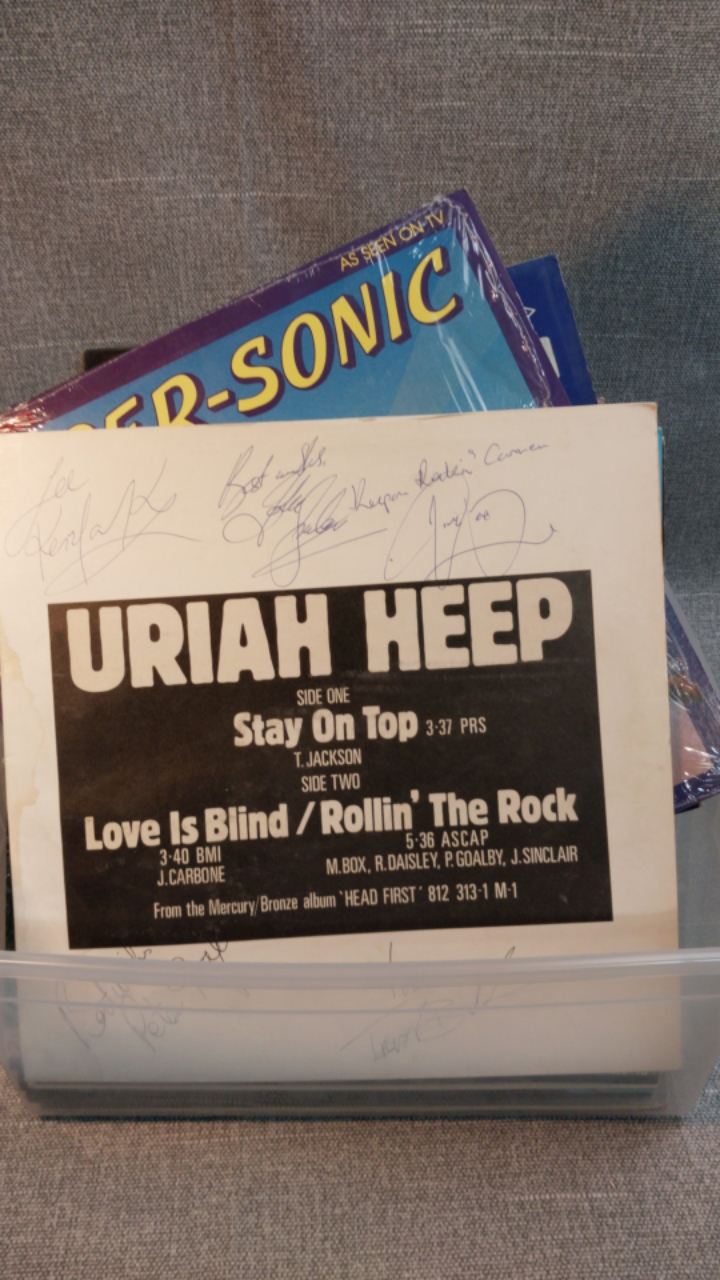 AS SEEN ON TV
ER-SONIC
Lee
Best wishes,
"Keep on Rockin" Carmen
URIAH HEEP
SIDE ONE
Stay On Top 3·37 PRS
T. JACKSON
SIDE TWO
Love Is Blind / Rollin' The Rock
3·40 BMI 5·36 ASCAP
J. CARBONE M. BOX, R. DAISLEY, P. GOALBY, J. SINCLAIR
From the Mercury/Bronze album 'HEAD FIRST' 812 313-1 M-1